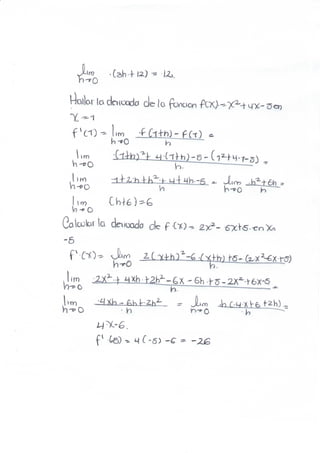 lim (3h+12) = 12
h→0
Hallar la derivada de la función f(x) = x²+4x-5 en
x = 1
f'(1) = lim f(1+h) - f(1) =
h→0 h
lim (1+h)² + 4(1+h) - 5 - (1²+4·1-5) =
h→0 h
lim 1+2h+h²+4+4h-5 = lim h²+6h =
h→0 h h→0 h
lim (h+6) = 6
h→0
Calcular la derivada de f(x) = 2x² - 6x+5 en x=
-5
f'(x) = lim 2(x+h)² - 6(x+h)+5 - (2x²-6x+5)
h→0 h
lim 2x²+4xh+2h²-6x-6h+5-2x²+6x-5
h→0 h
lim 4xh-6h+2h² = lim h(4x+6+2h) =
h→0 h h→0 h
4x-6.
f'(-5) = 4(-5) - 6 = -26